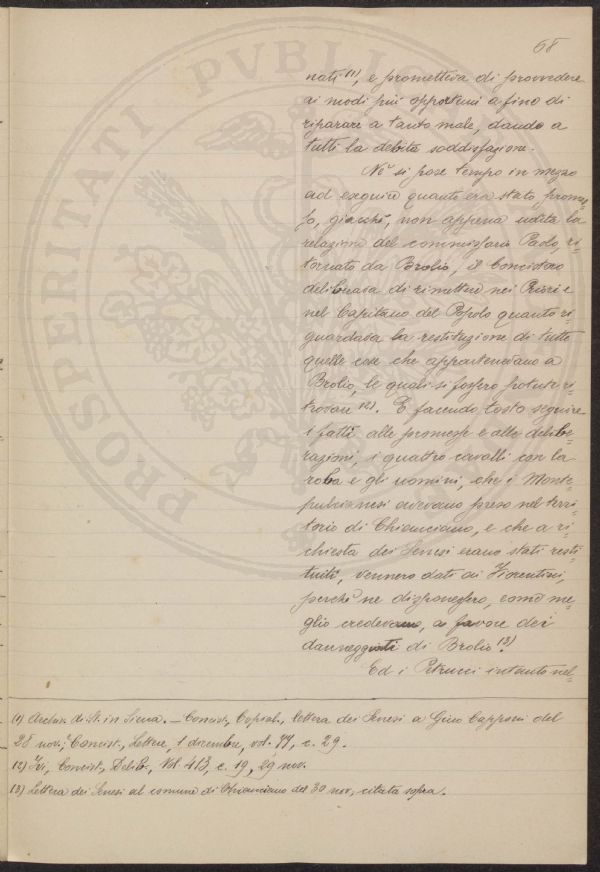 68
nati (1), e prometteva di provvedere
ai modi più opportuni a fine di
riparare a tanto male, dando a
tutti la debita soddisfazione.
Nè si pose tempo in mezzo
ad eseguire quanto era stato promes=
so, giacchè, non appena udita la
relazione del commissario Paolo, ri=
tornato da Brolio, il Concistoro
deliberava di rimettere nei Priori e
nel Capitano del Popolo quanto ri
guardava la restituzione di tutte
quelle cose che appartenevano a
Brolio, le quali si fossero potute ri=
trovare (2). E facendo tosto seguire
i fatti alle promesse e alle delibe=
razioni, i quattro cavalli con la
roba e gli uomini, che i Monte=
pulcianesi avevano preso nel terri=
torio di Chianciano, e che a ri=
chiesta dei Senesi erano stati resti=
tuiti, vennero dati ai Fiorentini,
perchè ne disponessero, come me=
glio credevano, a favore dei
danneggiati di Brolio (3).
Ed i Petrucci intanto nel=
(1) Archiv. di St. in Siena. — Concist., Copial., Lettera dei Senesi a Gino Capponi del
28 nov.; Concist., Lettere, 1 dicembre, vol. 77, c. 29.
(2) Ivi, Concist., Delib., Vol. 413, c. 19, 29 nov.
(3) Lettera dei Senesi al comune di Chianciano del 30 nov., citata sopra.
PROSPERITATI PVBLICAE